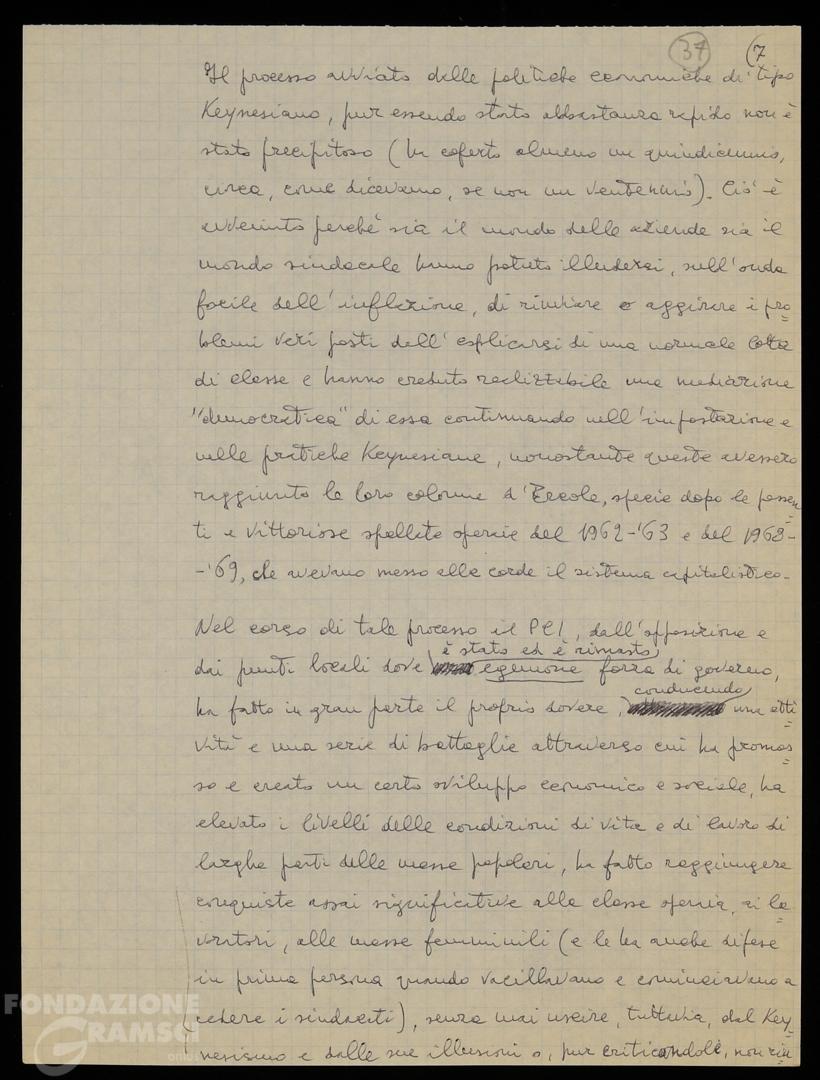 37 (7
Il processo avviato dalle politiche economiche di tipo
Keynesiano, pur essendo stato abbastanza rapido non è
stato precipitoso (ha coperto almeno un quindicennio,
circa, come dicevamo, se non un ventennio). Ciò è
avvenuto perché sia il mondo delle aziende sia il
mondo sindacale hanno potuto illudersi, sull'onda
facile dell'inflazione, di rinviare o aggirare i pro=
blemi veri posti dall'esplicarsi di una normale lotta
di classe e hanno creduto realizzabile una mediazione
"democratica" di essa continuando nell'impostazione e
nelle pratiche Keynesiane, nonostante queste avessero
raggiunto le loro colonne d'Ercole, specie dopo le possen=
ti e vittoriose spallate operaie del 1962-'63 e del 1968-
-'69, che avevano messo alle corde il sistema capitalistico.
Nel corso di tale processo il PCI, dall'opposizione e
dai punti locali dove è stato ed è rimasto egemone forza di governo,
ha fatto in gran parte il proprio dovere, conducendo una atti=
vità e una serie di battaglie attraverso cui ha promos=
so e creato un certo sviluppo economico e sociale, ha
elevato i livelli delle condizioni di vita e di lavoro di
larghe parti delle masse popolari, ha fatto raggiungere
conquiste assai significative alla classe operaia, ai la=
voratori, alle masse femminili (e le ha anche difese
in prima persona quando vacillavano e cominciavano a
cedere i sindacati), senza mai uscire, tuttavia, dal Key=
nesismo e dalle sue illusioni o, pur criticandole, non riu
FONDAZIONE
GRAMSCI
onlus